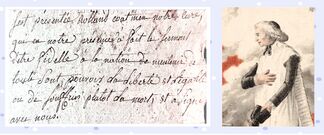 fest présentée holland citoyen notre curé
qui en notre presence a fait le serment
d'etre fidelle a la nation de maintenir de
toute sont pouvoir la liberte et l'egalite
ou de jouffrir plutot la mort, et a signe
avec nous.